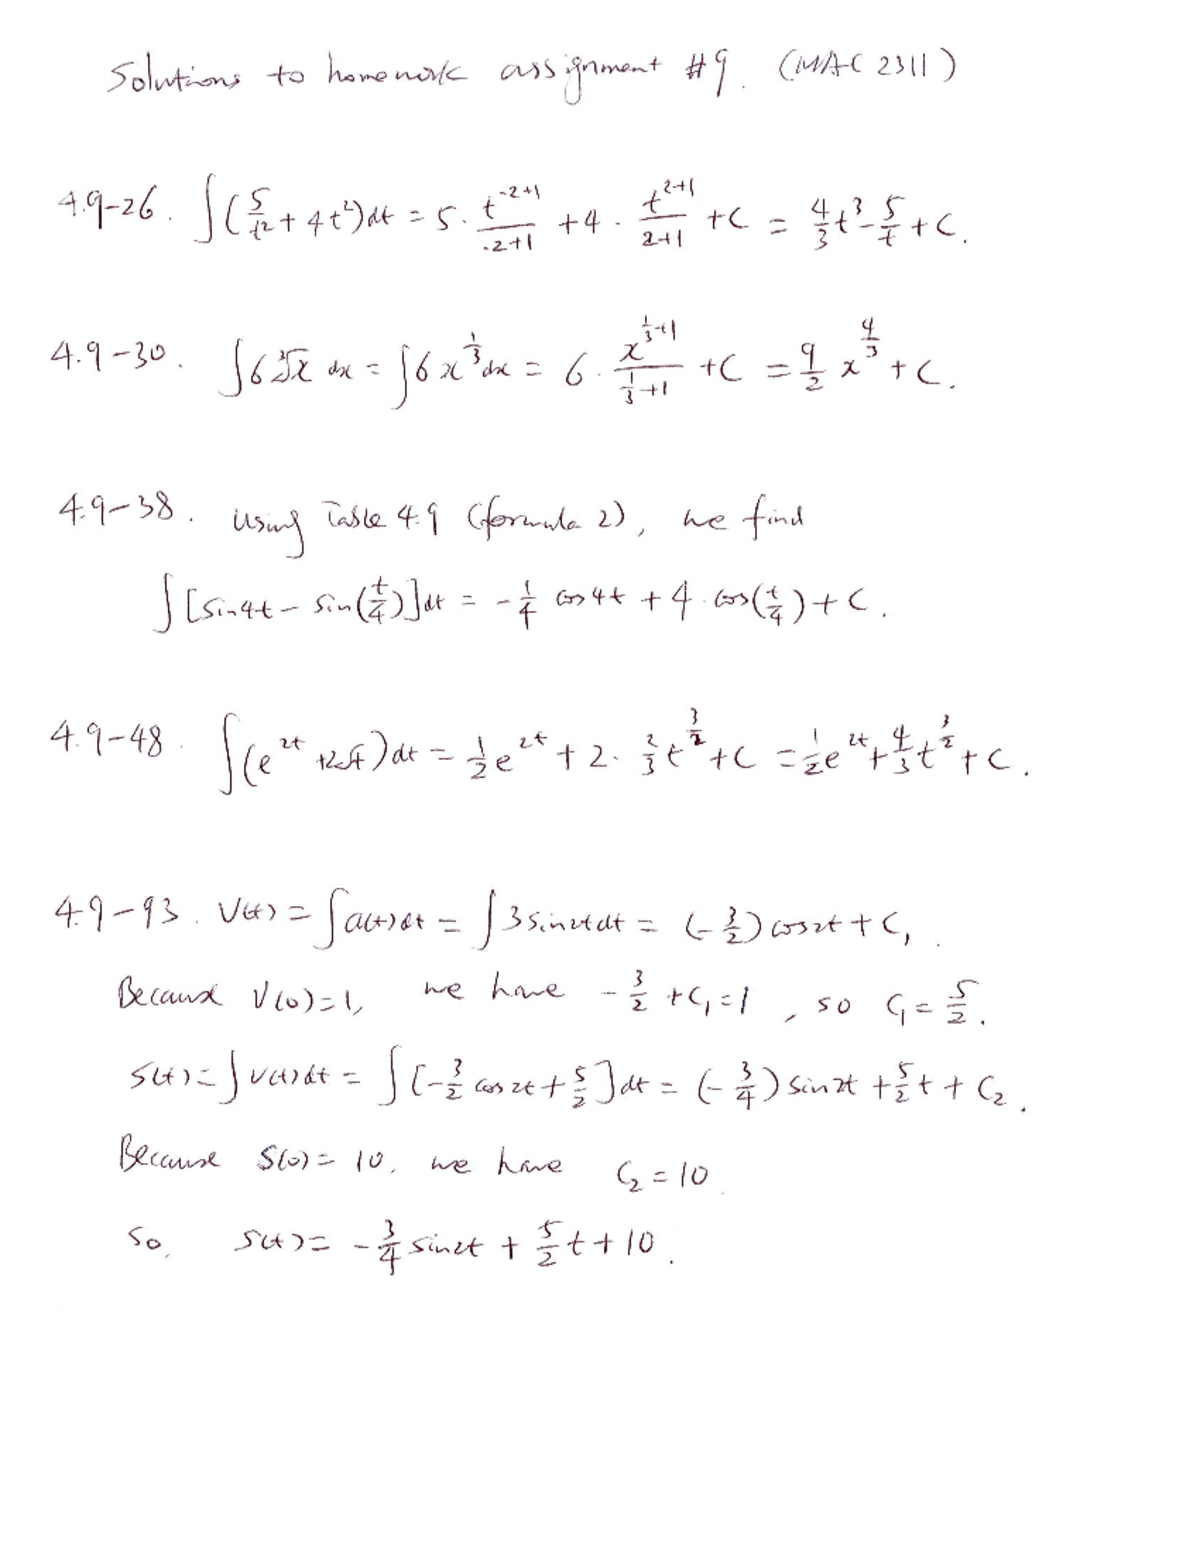 Solutions to homework assignment #9. (MAC 2311)
4.9-26. ∫(5/t² + 4t²)dt = 5·t^(-2+1)/(-2+1) + 4·t^(2+1)/(2+1) + C = 4/3 t³ - 5/t + C.
4.9-30. ∫6∛x dx = ∫6x^(1/3)dx = 6·x^(1/3+1)/(1/3+1) + C = 9/2 x^(4/3) + C.
4.9-38. Using Table 4.9 (formula 2), we find
∫[sin4t - sin(t/4)]dt = -1/4 cos4t + 4·cos(t/4) + C.
4.9-48. ∫(e^(2t) + 2√t)dt = 1/2 e^(2t) + 2·2/3 t^(3/2) + C = 1/2 e^(2t) + 4/3 t^(3/2) + C.
4.9-93. V(t) = ∫a(t)dt = ∫3sin2tdt = (-3/2)cos2t + C₁.
Because V(0)=1, we have -3/2 + C₁ = 1, so C₁ = 5/2.
S(t) = ∫V(t)dt = ∫[-3/2 cos2t + 5/2]dt = (-3/4)sin2t + 5/2 t + C₂.
Because S(0) = 10, we have C₂ = 10.
So, S(t) = -3/4 sin2t + 5/2 t + 10.